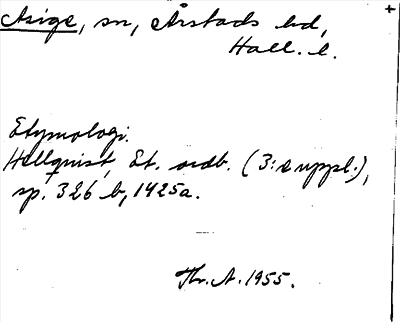 Asige, sn, Årstads hd,
Hall. l.
Etymologi.
Hellquist, Et. ordb. (3:e uppl.),
sp. 326 b, 1425a.
Thr. A. 1955.